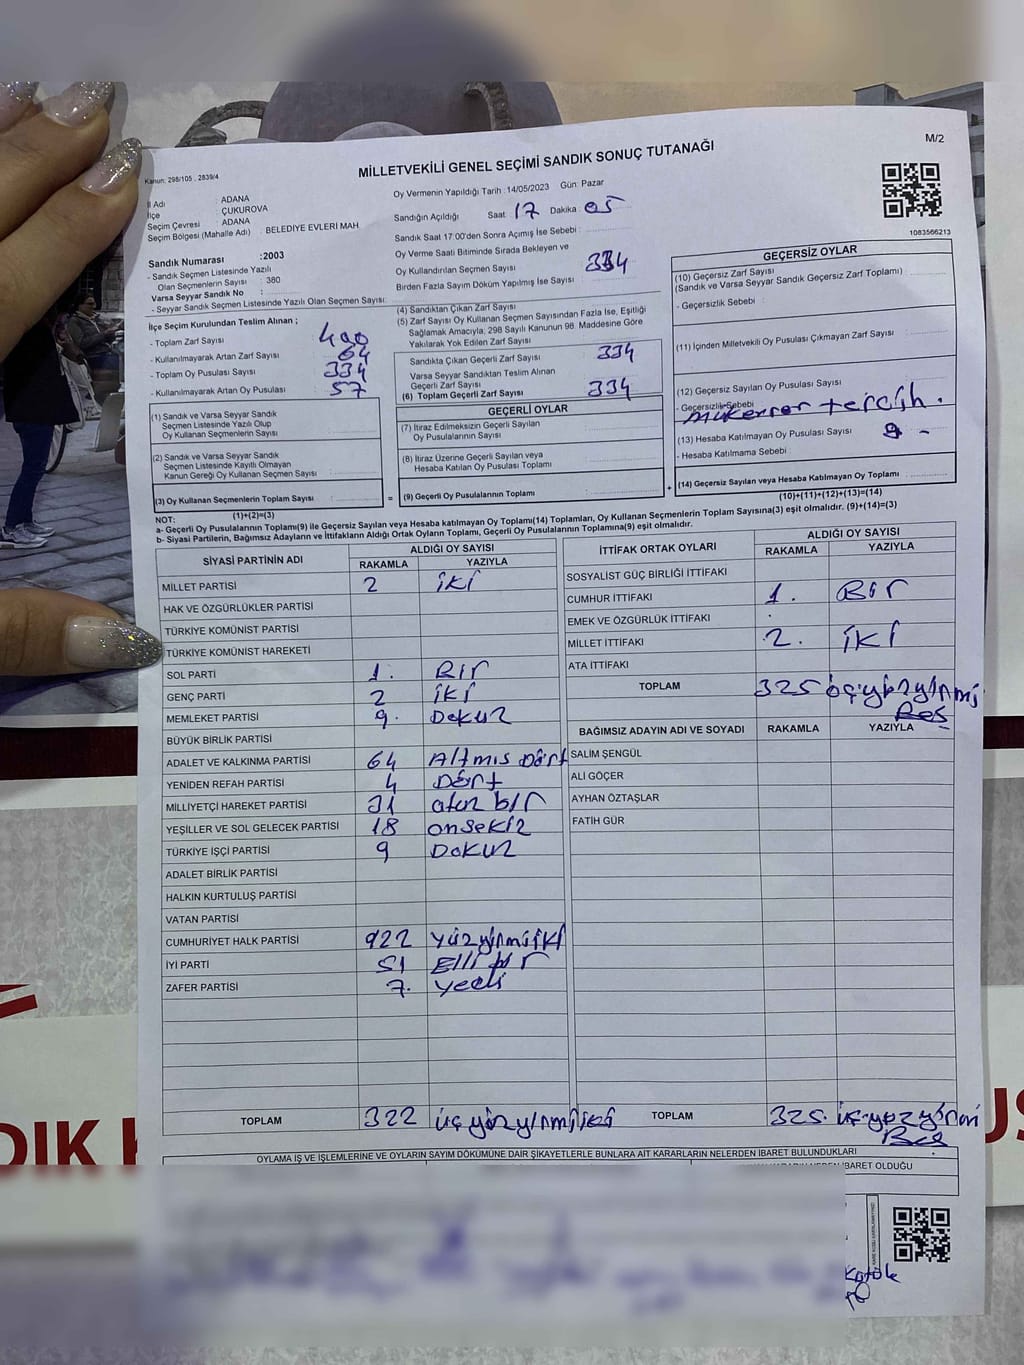 M/2
MİLLETVEKİLİ GENEL SEÇİMİ SANDIK SONUÇ TUTANAĞI
Kanun: 298/105 , 2839/4
İl Adı : ADANA
İlçe : ÇUKUROVA
Seçim Çevresi : ADANA
Seçim Bölgesi (Mahalle Adı) : BELEDİYE EVLERİ MAH
Sandık Numarası :2003
- Sandık Seçmen Listesinde Yazılı
Olan Seçmenlerin Sayısı : 380
Varsa Seyyar Sandık No :
- Seyyar Sandık Seçmen Listesinde Yazılı Olan Seçmen Sayısı:
Oy Vermenin Yapıldığı Tarih :14/05/2023 Gün: Pazar
Sandığın Açıldığı Saat 17 Dakika : 05
Sandık Saat 17:00'den Sonra Açımış İse Sebebi :
Oy Verme Saati Bitiminde Sırada Bekleyen ve
Oy Kullandırılan Seçmen Sayısı : 334
Birden Fazla Sayım Döküm Yapılmış İse Sayısı :
1083566213
İlçe Seçim Kurulundan Teslim Alınan ;
- Toplam Zarf Sayısı : 400
- Kullanılmayarak Artan Zarf Sayısı : 64
- Toplam Oy Pusulası Sayısı : 334
- Kullanılmayarak Artan Oy Pusulası : 57
(1) Sandık ve Varsa Seyyar Sandık
Seçmen Listesinde Yazılı Olup
Oy Kullanan Seçmenlerin Sayısı :
(2) Sandık ve Varsa Seyyar Sandık
Seçmen Listesinde Kayıtlı Olmayan
Kanun Gereği Oy Kullanan Seçmen Sayısı :
(3) Oy Kullanan Seçmenlerin Toplam Sayısı :
(1)+(2)=(3)
(4) Sandıktan Çıkan Zarf Sayısı :
(5) Zarf Sayısı Oy Kullanan Seçmen Sayısından Fazla İse, Eşitliği
Sağlamak Amacıyla; 298 Sayılı Kanunun 98. Maddesine Göre
Yakılarak Yok Edilen Zarf Sayısı :
Sandıkta Çıkan Geçerli Zarf Sayısı : 334
Varsa Seyyar Sandıktan Teslim Alınan
Geçerli Zarf Sayısı :
(6) Toplam Geçerli Zarf Sayısı : 334
GEÇERLİ OYLAR
(7) İtiraz Edilmeksizin Geçerli Sayılan
Oy Pusulalarının Sayısı :
(8) İtiraz Üzerine Geçerli Sayılan veya
Hesaba Katılan Oy Pusulası Toplamı :
= (9) Geçerli Oy Pusulalarının Toplamı :
GEÇERSİZ OYLAR
(10) Geçersiz Zarf Sayısı
(Sandık ve Varsa Seyyar Sandık Geçersiz Zarf Toplamı) :
- Geçersizlik Sebebi :
(11) İçinden Milletvekili Oy Pusulası Çıkmayan Zarf Sayısı :
(12) Geçersiz Sayılan Oy Pusulası Sayısı :
- Geçersizlik Sebebi
mükerrer tercih.
(13) Hesaba Katılmayan Oy Pusulası Sayısı : 9 -
- Hesaba Katılmama Sebebi :
+ (14) Geçersiz Sayılan veya Hesaba Katılmayan Oy Toplamı :
(10)+(11)+(12)+(13)=(14)
NOT:
a- Geçerli Oy Pusulalarının Toplamı(9) ile Geçersiz Sayılan veya Hesaba katılmayan Oy Toplamı(14) Toplamları, Oy Kullanan Seçmenlerin Toplam Sayısına(3) eşit olmalıdır. (9)+(14)=(3)
b- Siyasi Partilerin, Bağımsız Adayların ve İttifakların Aldığı Ortak Oyların Toplamı, Geçerli Oy Pusulalarının Toplamına(9) eşit olmalıdır.
SİYASİ PARTİNİN ADI ALDIĞI OY SAYISI
RAKAMLA YAZIYLA
MİLLET PARTİSİ 2 iki
HAK VE ÖZGÜRLÜKLER PARTİSİ
TÜRKİYE KOMÜNİST PARTİSİ
TÜRKİYE KOMÜNİST HAREKETİ
SOL PARTİ 1. Bir
GENÇ PARTİ 2 iki
MEMLEKET PARTİSİ 9. Dokuz
BÜYÜK BİRLİK PARTİSİ
ADALET VE KALKINMA PARTİSİ 64 Altmıs Dört
YENİDEN REFAH PARTİSİ 4 Dört
MİLLİYETÇİ HAREKET PARTİSİ 31 otuz bir
YEŞİLLER VE SOL GELECEK PARTİSİ 18 onsekiz
TÜRKİYE İŞÇİ PARTİSİ 9 Dokuz
ADALET BİRLİK PARTİSİ
HALKIN KURTULUŞ PARTİSİ
VATAN PARTİSİ
CUMHURİYET HALK PARTİSİ 122 yüzyirmiiki
İYİ PARTİ 51 Elli bir
ZAFER PARTİSİ 7. yedi
TOPLAM 322 üçyüzyirmiiki
İTTİFAK ORTAK OYLARI ALDIĞI OY SAYISI
RAKAMLA YAZIYLA
SOSYALİST GÜÇ BİRLİĞİ İTTİFAKI
CUMHUR İTTİFAKI 1. Bir
EMEK VE ÖZGÜRLÜK İTTİFAKI
MİLLET İTTİFAKI 2. iki
ATA İTTİFAKI
TOPLAM 325 üçyüzyirmi
Beş
BAĞIMSIZ ADAYIN ADI VE SOYADI RAKAMLA YAZIYLA
SALİM ŞENGÜL
ALİ GÖÇER
AYHAN ÖZTAŞLAR
FATİH GÜR
TOPLAM 325. üçyüzyirmi
Beş
OYLAMA İŞ VE İŞLEMLERİNE VE OYLARIN SAYIM DÖKÜMÜNE DAİR ŞİKAYETLERLE BUNLARA AİT KARARLARIN NELERDEN İBARET BULUNDUKLARI
İBARET OLDUĞU
DIK